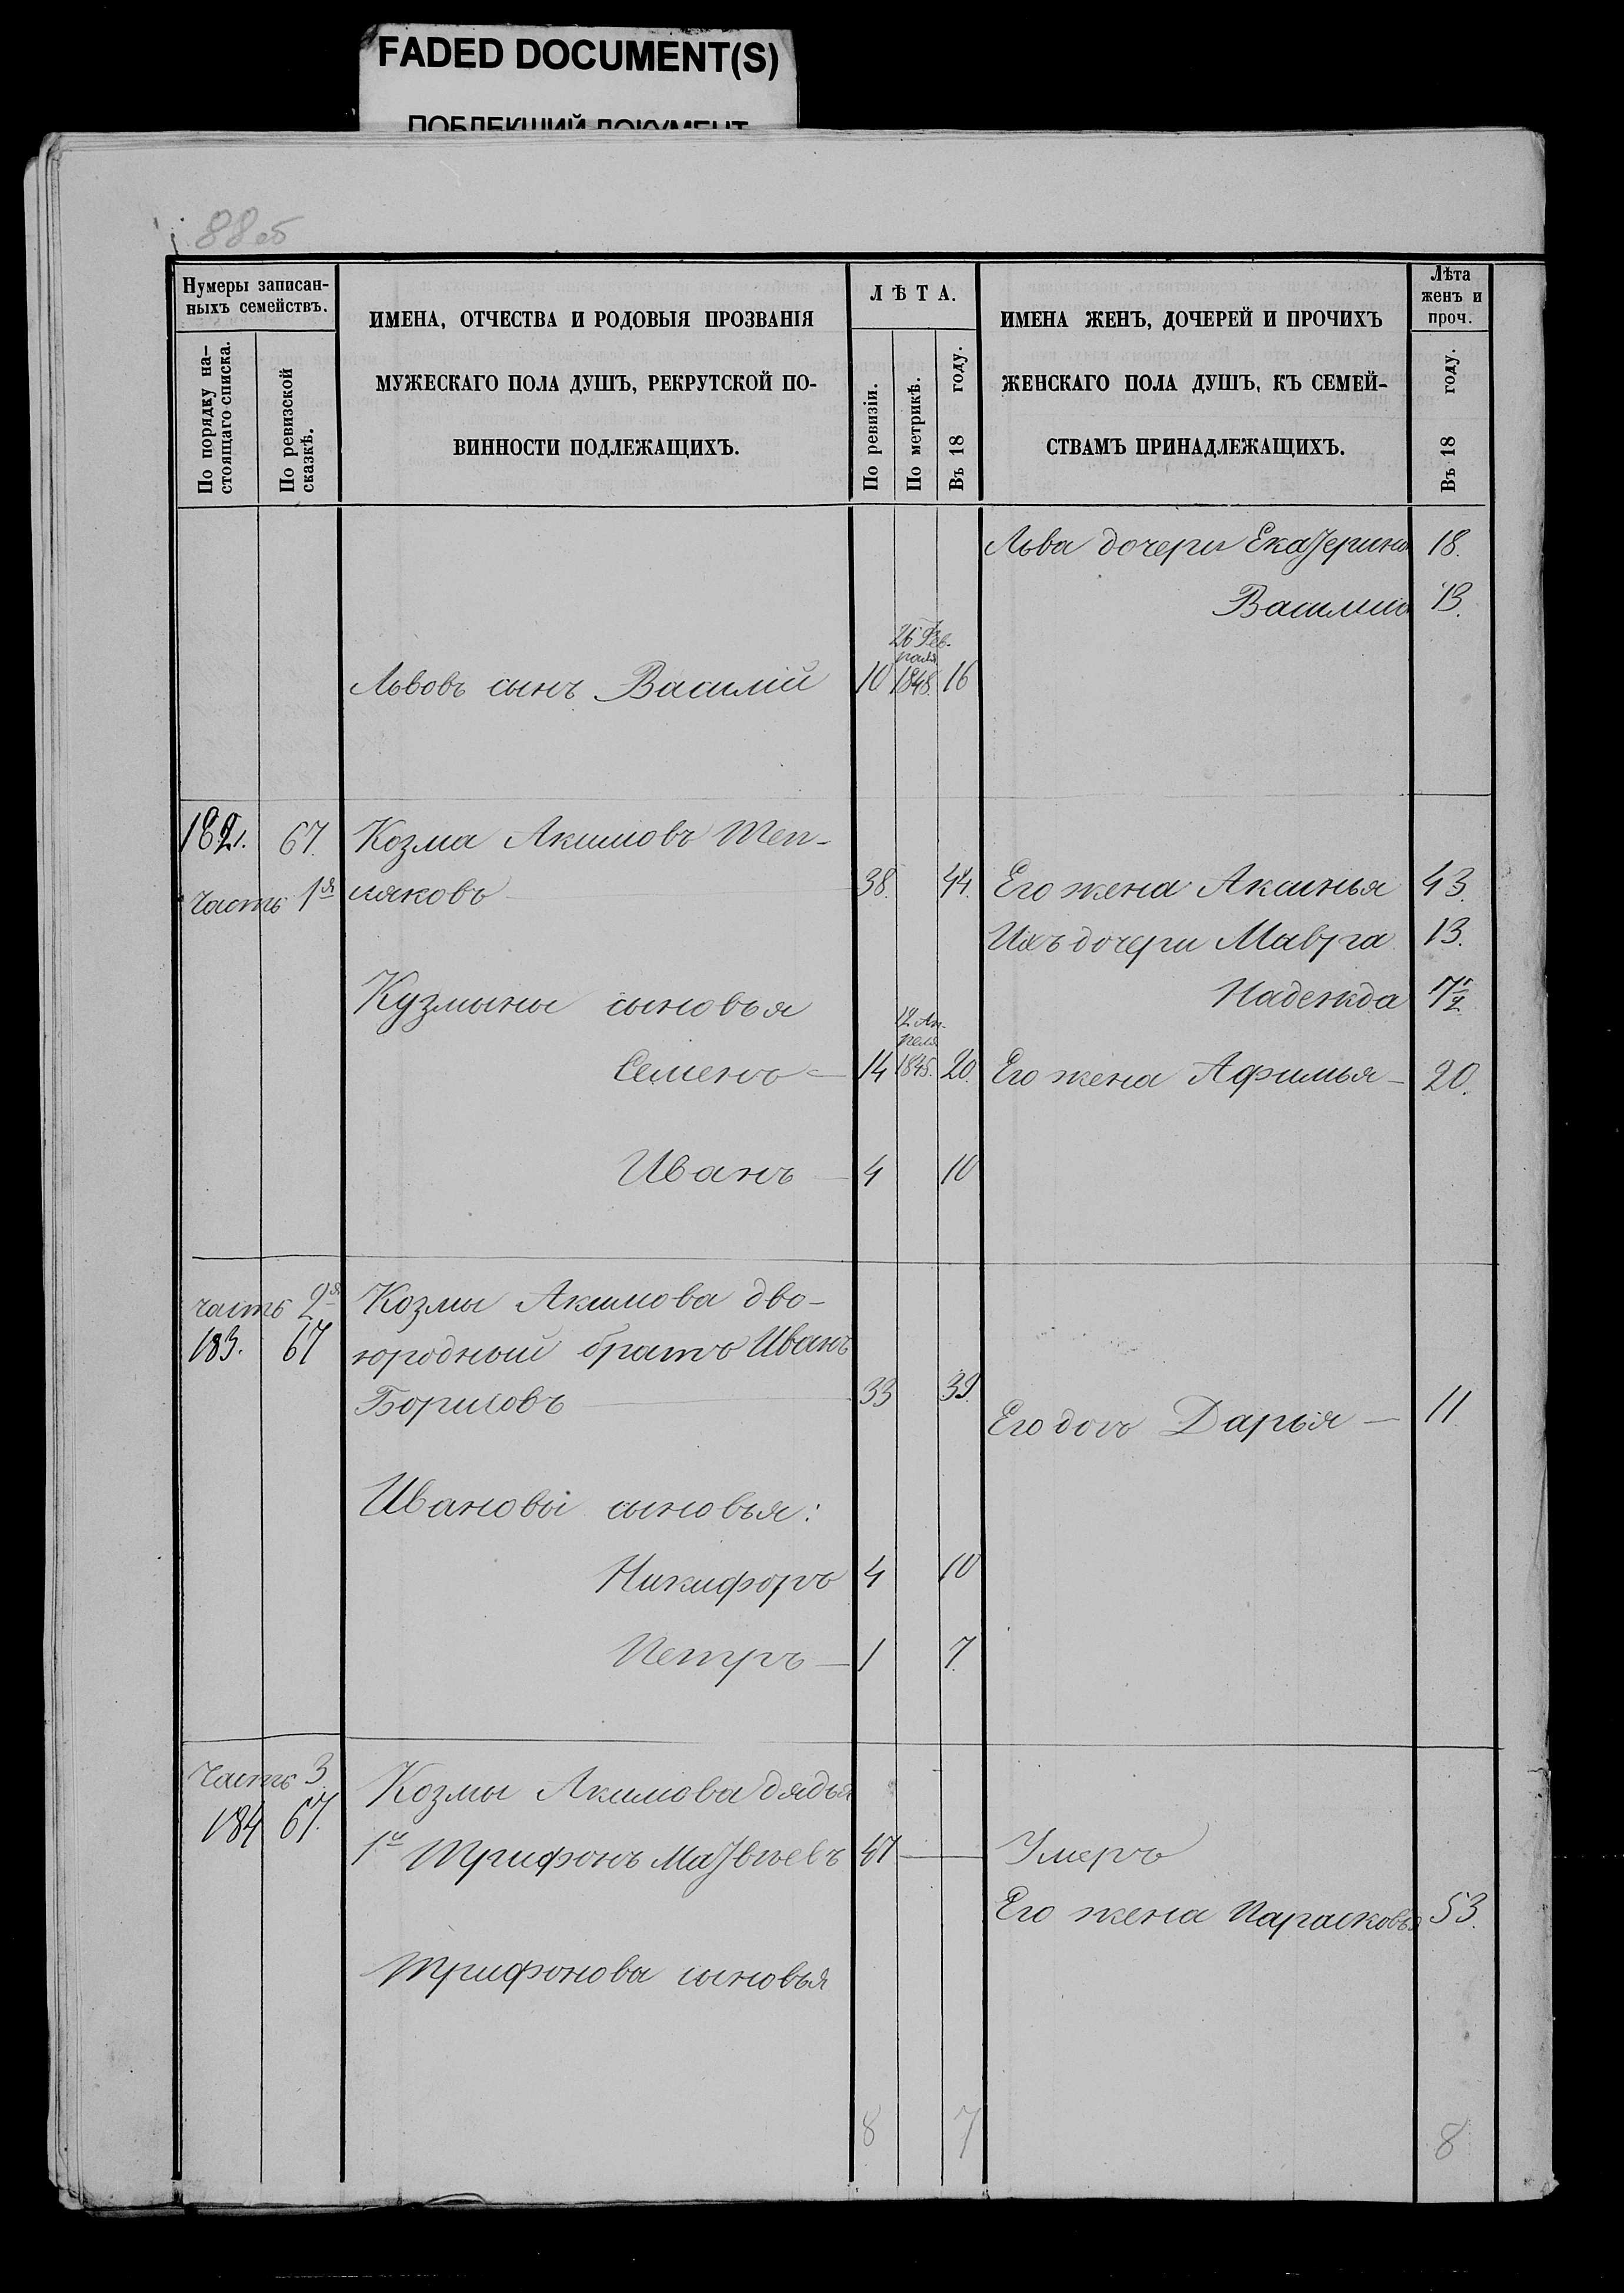 FADED DOCUMENT(S)
ПОБЛЕКШИЙ ДОКУМЕНТ
88 об
Нумеры записан-
ныхъ семействъ.
По порядку на-
стоящаго списка.
По ревизской
сказкѣ.
ИМЕНА, ОТЧЕСТВА И РОДОВЫЯ ПРОЗВАНІЯ
МУЖЕСКАГО ПОЛА ДУШЪ, РЕКРУТСКОЙ ПО-
ВИННОСТИ ПОДЛЕЖАЩИХЪ.
ЛѢТА.
По ревизіи.
По метрикѣ.
Въ 18 году.
ИМЕНА ЖЕНЪ, ДОЧЕРЕЙ И ПРОЧИХЪ
ЖЕНСКАГО ПОЛА ДУШЪ, КЪ СЕМЕЙ-
СТВАМЪ ПРИНАДЛЕЖАЩИХЪ.
Лѣта
женъ и
проч.
Въ 18 году.
Льва дочери Екатерина 18.
Василиса 13.
26 Фев-
раля
Львовъ сынъ Василій 10 1848. 16
182. 67. Козма Акимовъ Теп-
часть 1я ляковъ 38. 44. Его жена Аксинья 43.
Ихъ дочери Мавра 13.
Кузмины сыновья Надежда 7 1/2
12 Ап-
реля
Семенъ – 14 1845. 20. Его жена Афимья – 20.
Иванъ – 4 10
часть 2я Козмы Акимова дво-
183. 67 юродный братъ Иванъ
Борисовъ 33 39.
Его дочь Дарья – 11
Ивановы сыновья:
Никифоръ 4 10
Петръ – 1 7.
Часть 3 Козмы Акимова дядья
184 67. 1й Трифонъ Матвѣевъ 47 — Умеръ
Его жена Парасковья 53.
Трифонова сыновья
8 7 8